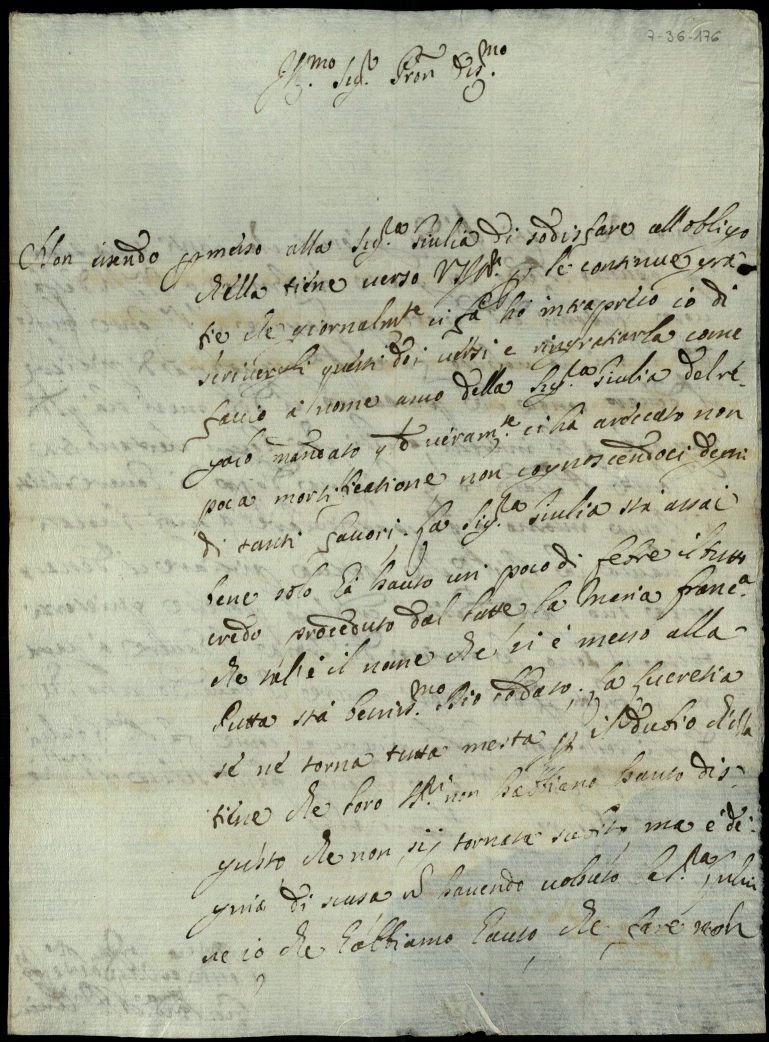 7-36-176
Ill.mo Sig.r Pron
Non essendo permesso alla Sig.ra Giulia di sodisfare all'obligo
ch'ella tiene verso VS Ill. p le continue gra
tie che giornalm.te ci fa ho intrapreso io di
scriverli questi doi versi e ringratiarla come
faccio à nome anco della Sig.ra Giulia del re
galo mandato q.to veram.te ci hà arrecato non
poca mortificatione non cognoscendoci degni
di tanti favori. La Sig.ra Giulia stà assai
bene solo hà hauto un poco di febre il tutto
credo proceduto dal latte la Maria Franc.a
che tal'è il nome che si è messo alla
Putta stà beniss.mo Dio lodato. La Lucretia
se ne torna tutta mesta p il dubio ch'ella
tiene che loro SS.ri non habbiano hauto dis
gusto che non sij tornata subito ma è de
gnia di scusa havendo voluto la Giulia
ne io che habbiamo hauto che fare non